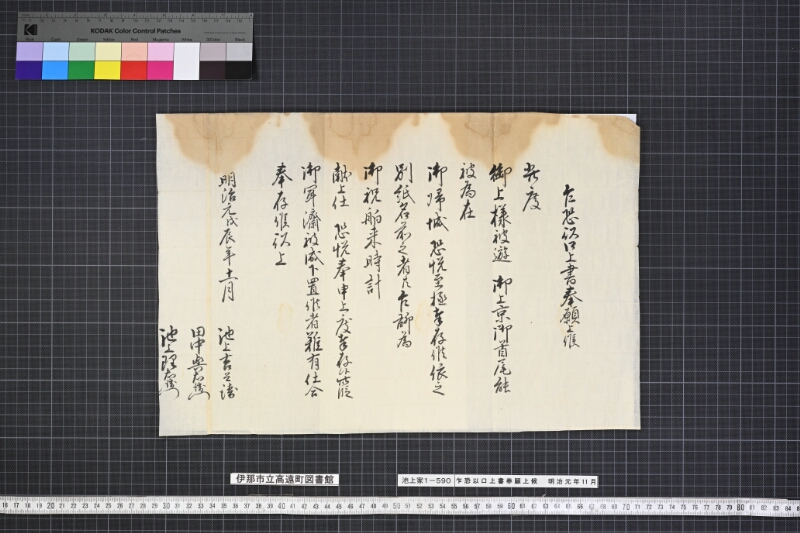 乍恐以口上書奉願上候
此度
御上様被遊 御上京御首尾能
被為在
御帰城 恐悦至極奉存候依之
別紙名前之者共乍聊為
御祝舶来時計
献上仕 恐悦奉申上度奉存候
御聞済被成下置候者難有仕合
奉存候以上
明治元戊辰年十一月
池上
田中
池上
KODAK Color Control Patches
伊那市立高遠町図書館
池上家1-590 乍恐以口上書奉願上候 明治元年11月